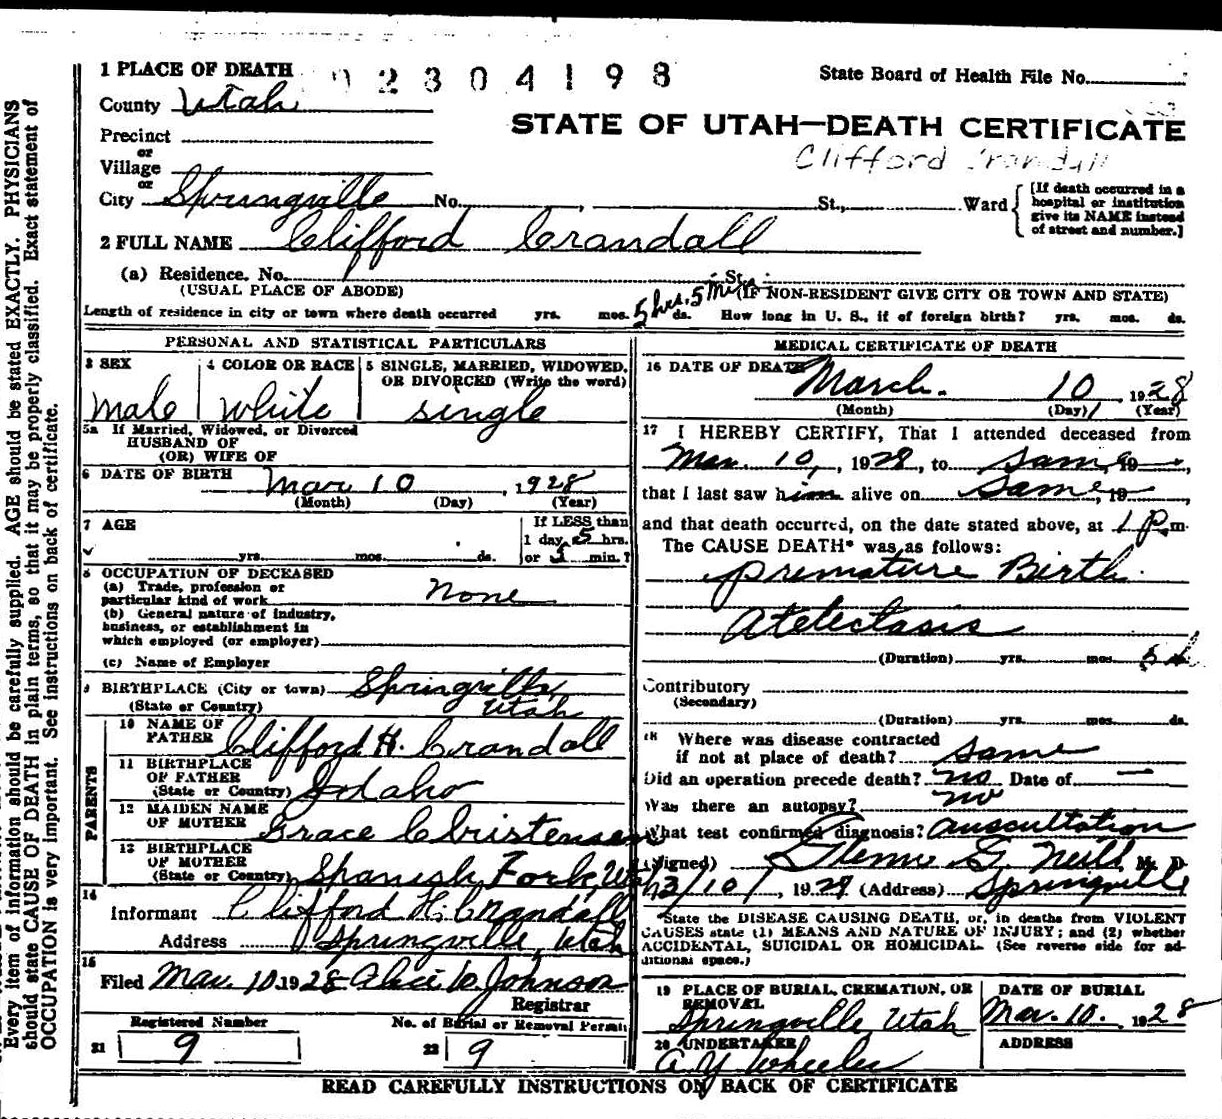 1 PLACE OF DEATH 02304198 State Board of Health File No.
County Utah
STATE OF UTAH—DEATH CERTIFICATE
Precinct
or
Clifford Crandall
Village
or
City Springville No. , St., Ward [If death occurred in a hospital or institution give its NAME instead of street and number.]
2 FULL NAME Clifford Crandall
(a) Residence. No. St.
(USUAL PLACE OF ABODE) (IF NON-RESIDENT GIVE CITY OR TOWN AND STATE)
Length of residence in city or town where death occurred yrs. mos. 5 hrs. 5 Min ds. How long in U. S., if of foreign birth? yrs. mos. ds.
PERSONAL AND STATISTICAL PARTICULARS
3 SEX
male
4 COLOR OR RACE
white
5 SINGLE, MARRIED, WIDOWED,
OR DIVORCED (Write the word)
single
5a If Married, Widowed, or Divorced
HUSBAND OF
(OR) WIFE OF
6 DATE OF BIRTH Mar 10, 1928
(Month) (Day) (Year)
7 AGE
yrs. mos. ds.
If LESS than
1 day, 5 hrs.
or 5 min.?
8 OCCUPATION OF DECEASED
(a) Trade, profession or
particular kind of work none
(b) General nature of industry,
business, or establishment in
which employed (or employer)
(c) Name of Employer
9 BIRTHPLACE (City or town) Springville
(State or Country) Utah
PARENTS
10 NAME OF
FATHER Clifford H. Crandall
11 BIRTHPLACE
OF FATHER
(State or Country) Idaho
12 MAIDEN NAME
OF MOTHER Grace Christensen
13 BIRTHPLACE
OF MOTHER
(State or Country) Spanish Fork, Utah
14
Informant Clifford H. Crandall
Address Springville, Utah
15
Filed Mar. 10 1928 Alice D. Johnson
Registrar
Registered Number
21 9
No. of Burial or Removal Permit
22 9
MEDICAL CERTIFICATE OF DEATH
16 DATE OF DEATH March 10, 1928
(Month) (Day) (Year)
17 I HEREBY CERTIFY, That I attended deceased from
Mar. 10, 1928, to Same, 19—,
that I last saw him alive on Same, 19—,
and that death occurred, on the date stated above, at 1 P.m.
The CAUSE DEATH* was as follows:
Premature Birth
Atelectasis
(Duration) yrs. mos. 5 h
Contributory
(Secondary)
(Duration) yrs. mos. ds.
18 Where was disease contracted
if not at place of death? Same
Did an operation precede death? no Date of —
Was there an autopsy? no
What test confirmed diagnosis? Auscultation
(Signed) Glenn G. Neill M. D.
3/10/, 1928 (Address) Springville
*State the DISEASE CAUSING DEATH, or, in deaths from VIOLENT
CAUSES state (1) MEANS AND NATURE OF INJURY; and (2) whether
ACCIDENTAL, SUICIDAL OR HOMICIDAL. (See reverse side for ad-
ditional space.)
19 PLACE OF BURIAL, CREMATION, OR
REMOVAL
Springville, Utah
DATE OF BURIAL
Mar. 10. 1928
20 UNDERTAKER
A. Y. Wheeler
ADDRESS
READ CAREFULLY INSTRUCTIONS ON BACK OF CERTIFICATE
Every item of information should be carefully supplied. AGE should be stated EXACTLY. PHYSICIANS
should state CAUSE OF DEATH in plain terms, so that it may be properly classified. Exact statement of
OCCUPATION is very important. See instructions on back of certificate.